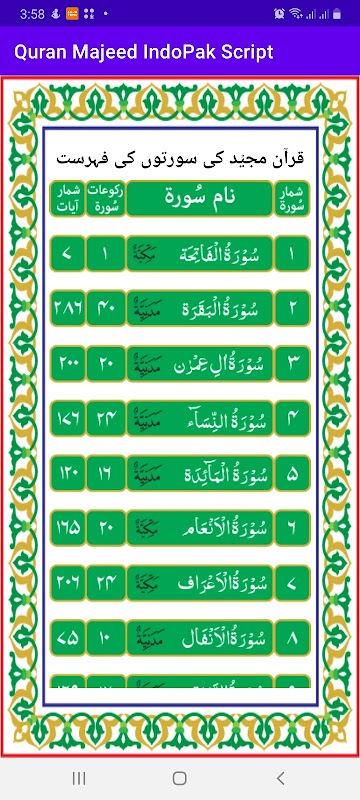 3:58
Quran Majeed IndoPak Script
قرآن مجید کی سورتوں کی فہرست
شمار سُورۃ نام سُورۃ رکوعات سُورۃ شمار آیات
۱ سُوْرَۃُ الْفَاتِحَة مَکِّیَّۃٌ ۱ ۷
۲ سُوْرَۃُ الْبَقَرَة مَدَنِیَّۃٌ ۴۰ ۲۸۶
۳ سُوْرَۃُ اٰلِ عِمْرٰن مَدَنِیَّۃٌ ۲۰ ۲۰۰
۴ سُوْرَۃُ النِّسَآء مَدَنِیَّۃٌ ۲۴ ۱۷۶
۵ سُوْرَۃُ الْمَآئِدَة مَدَنِیَّۃٌ ۱۶ ۱۲۰
۶ سُوْرَۃُ الْاَنْعَام مَکِّیَّۃٌ ۲۰ ۱۶۵
۷ سُوْرَۃُ الْاَعْرَاف مَکِّیَّۃٌ ۲۴ ۲۰۶
۸ سُوْرَۃُ الْاَنْفَال مَدَنِیَّۃٌ ۱۰ ۷۵